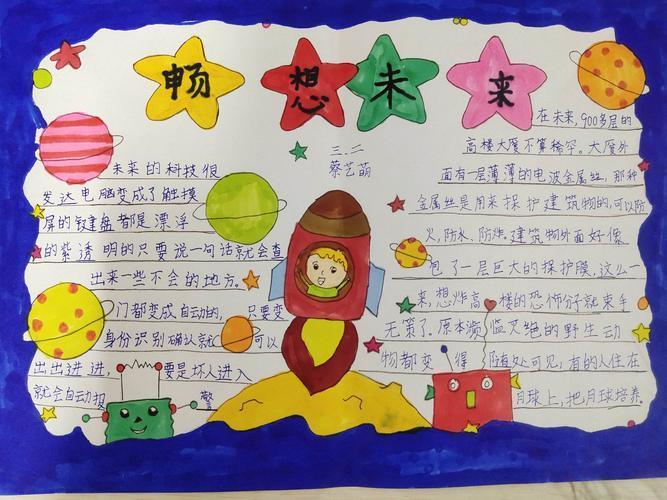 畅想未来
三.二
蔡艺萌
未来的科技很
发达电脑变成了触摸
屏的键盘都是漂浮
的紫透明的只要说一句话就会查
出来一些不会的地方。
门都变成自动的, 只要变
身份识别确认就 可以
出出进进, 要是坏人进入
就会自动报 警
在未来,900多层的
高楼大厦不算稀罕。大厦外
面有一层薄薄的电波金属丝,那种
金属丝是用来保护建筑物的,可以防
火,防水、防炸建筑物外面好像
包了一层巨大的保护膜,这么一
来,想炸高楼的恐怖分子就束手
无策了。原本濒临灭绝的野生动
物都变得随处可见,有的人住在
月球上,把月球培养。